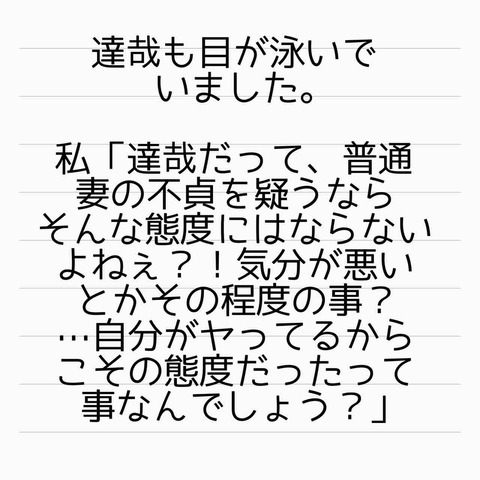 達哉も目が泳いで
いました。
私「達哉だって、普通
妻の不貞を疑うなら
そんな態度にはならない
よねぇ？！気分が悪い
とかその程度の事？
…自分がヤってるから
こその態度だったって
事なんでしょう？」